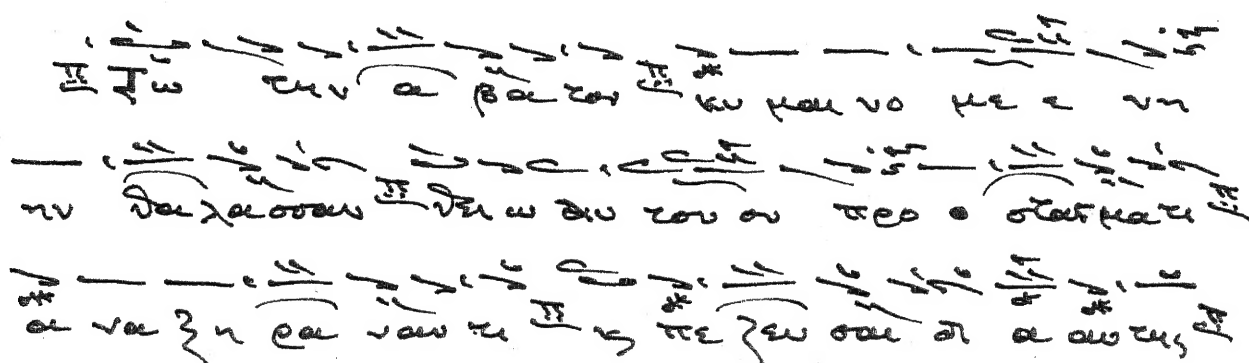 Τω την α βα τον κυ μαι νο με ε νη
ην θα λασσαν θει ω αυ του ου προ ο σταγμα τι
α να ξη ρα ναν τι ϗ πε ζευ σαι δι α αυ της